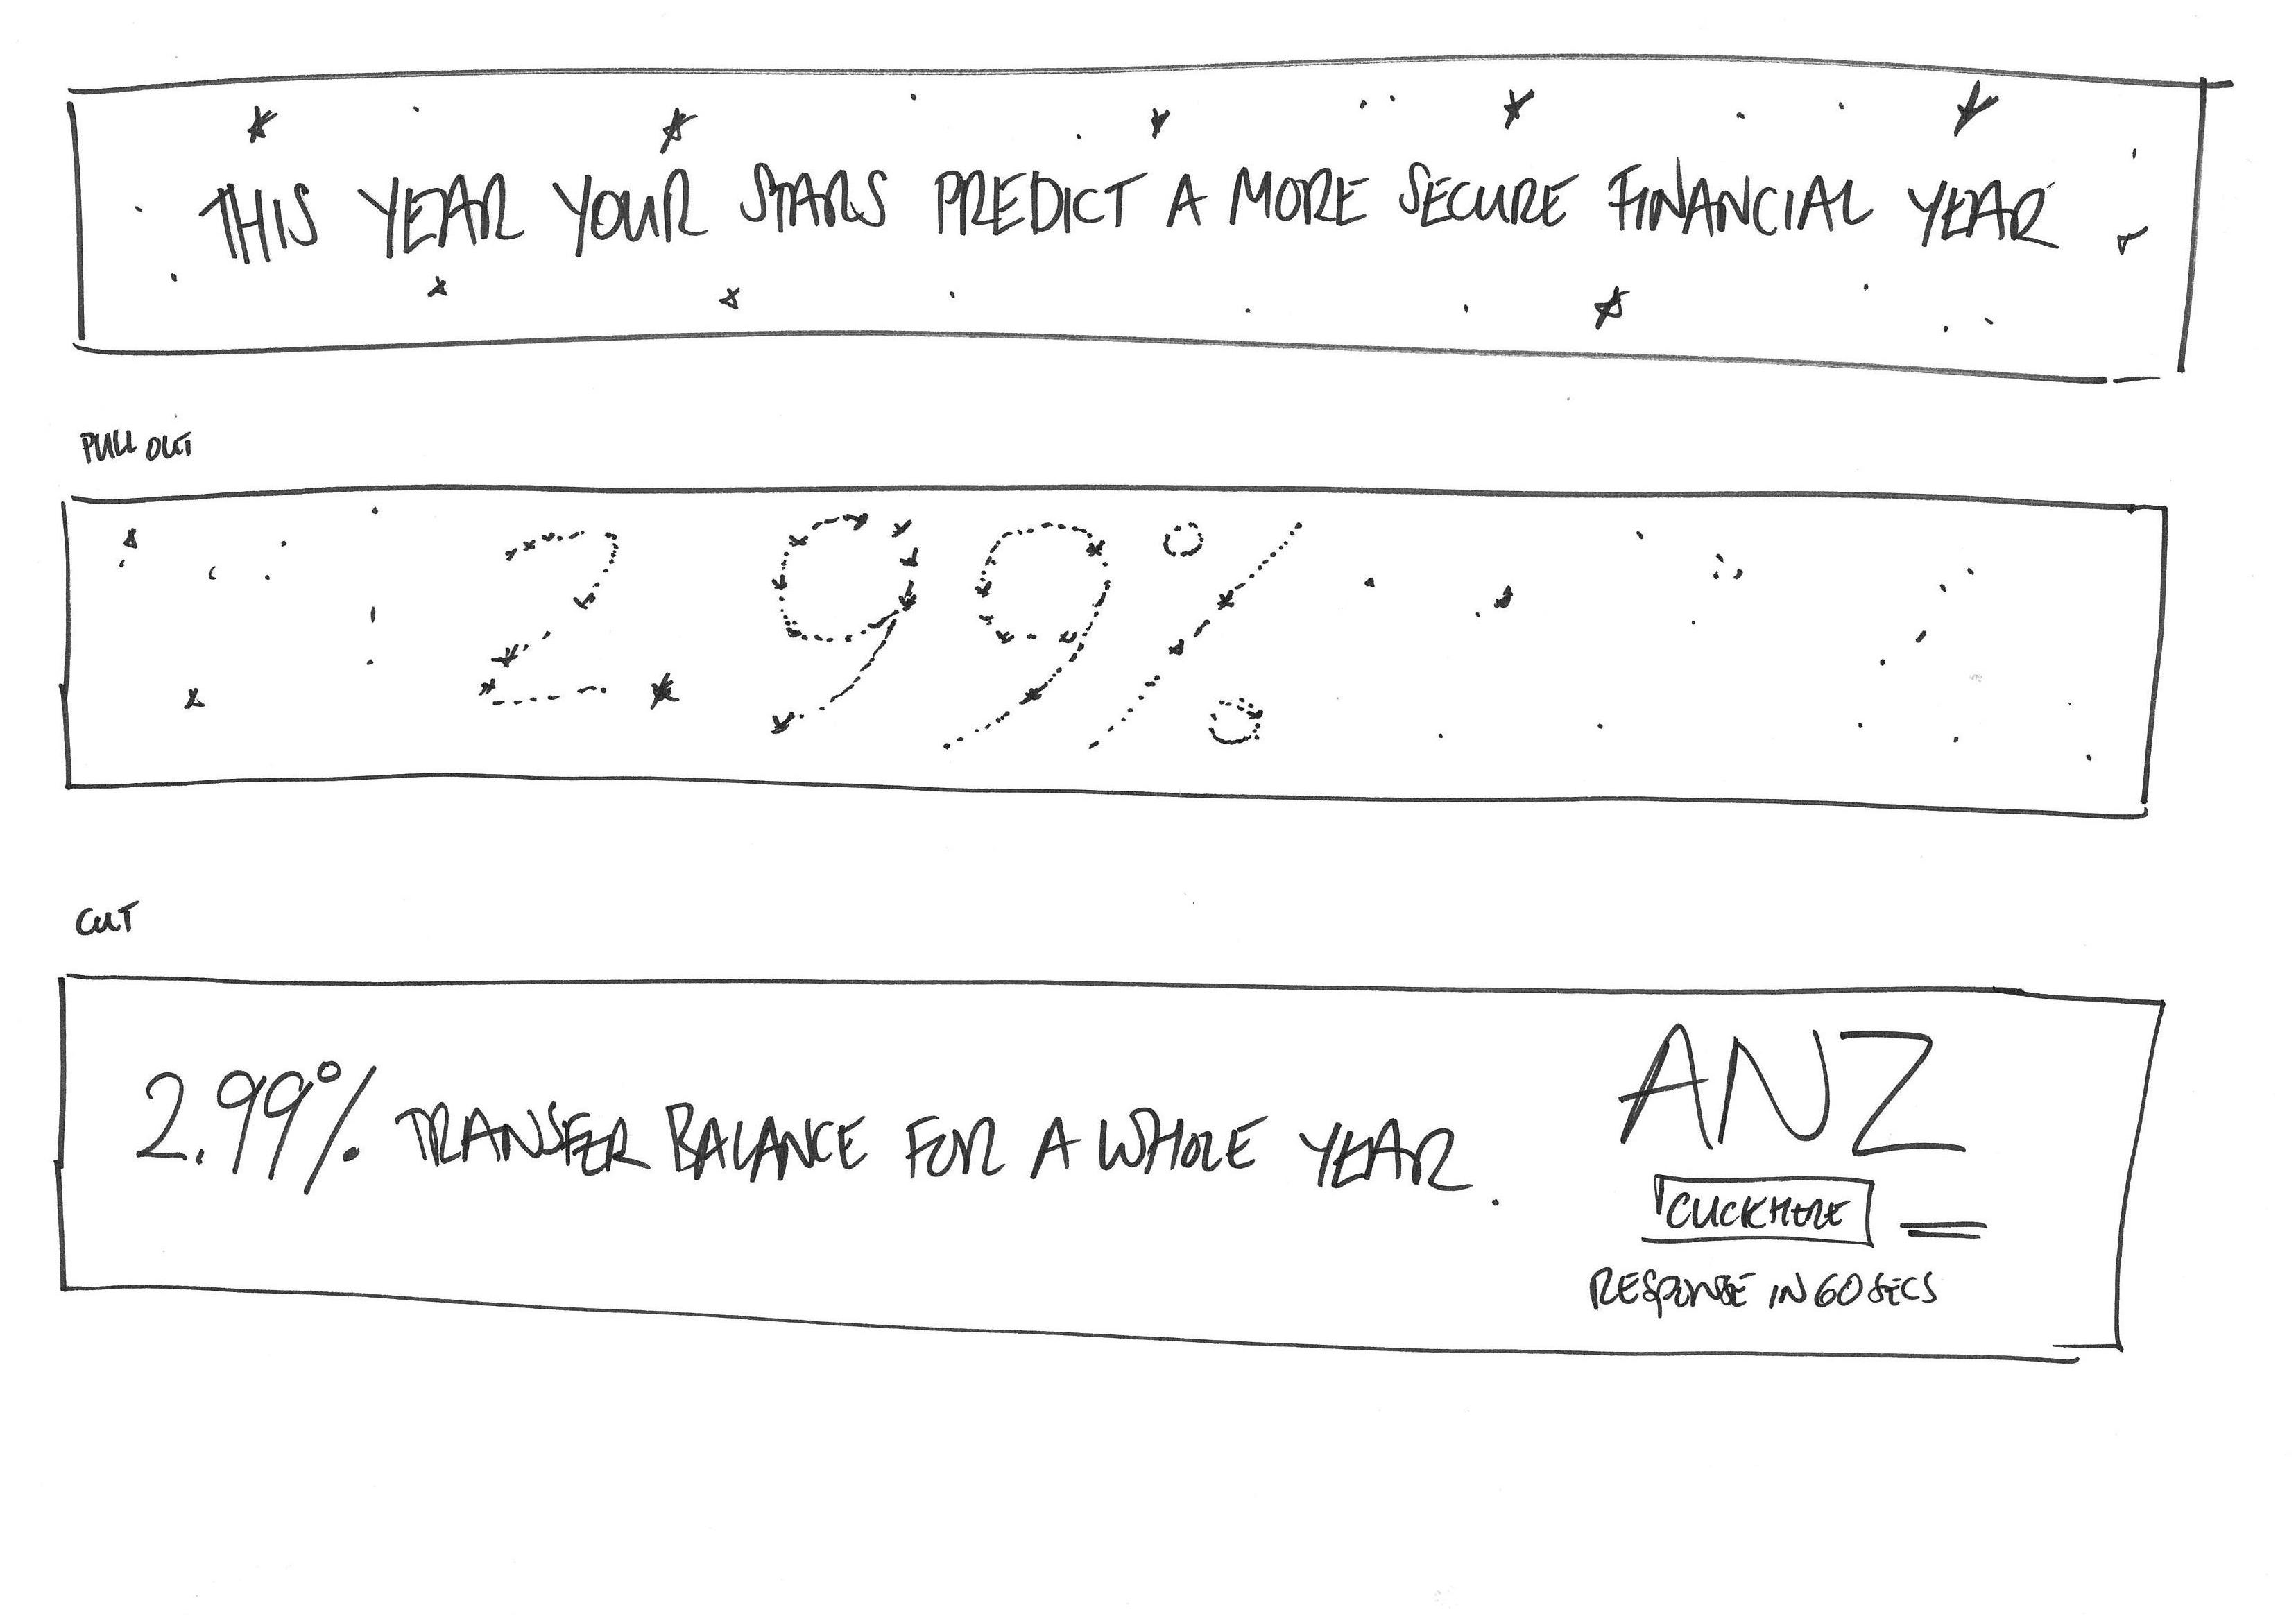 THIS YEAR YOUR STARS PREDICT A MORE SECURE FINANCIAL YEAR
PULL OUT
2.99%
CUT
2.99% TRANSFER BALANCE FOR A WHOLE YEAR.
ANZ
CLICK HERE
RESPONSE IN 60 SECS